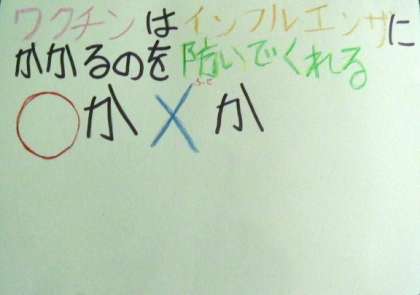 ワクチンはインフルエンザに
かかるのを防いでくれる
○か×か